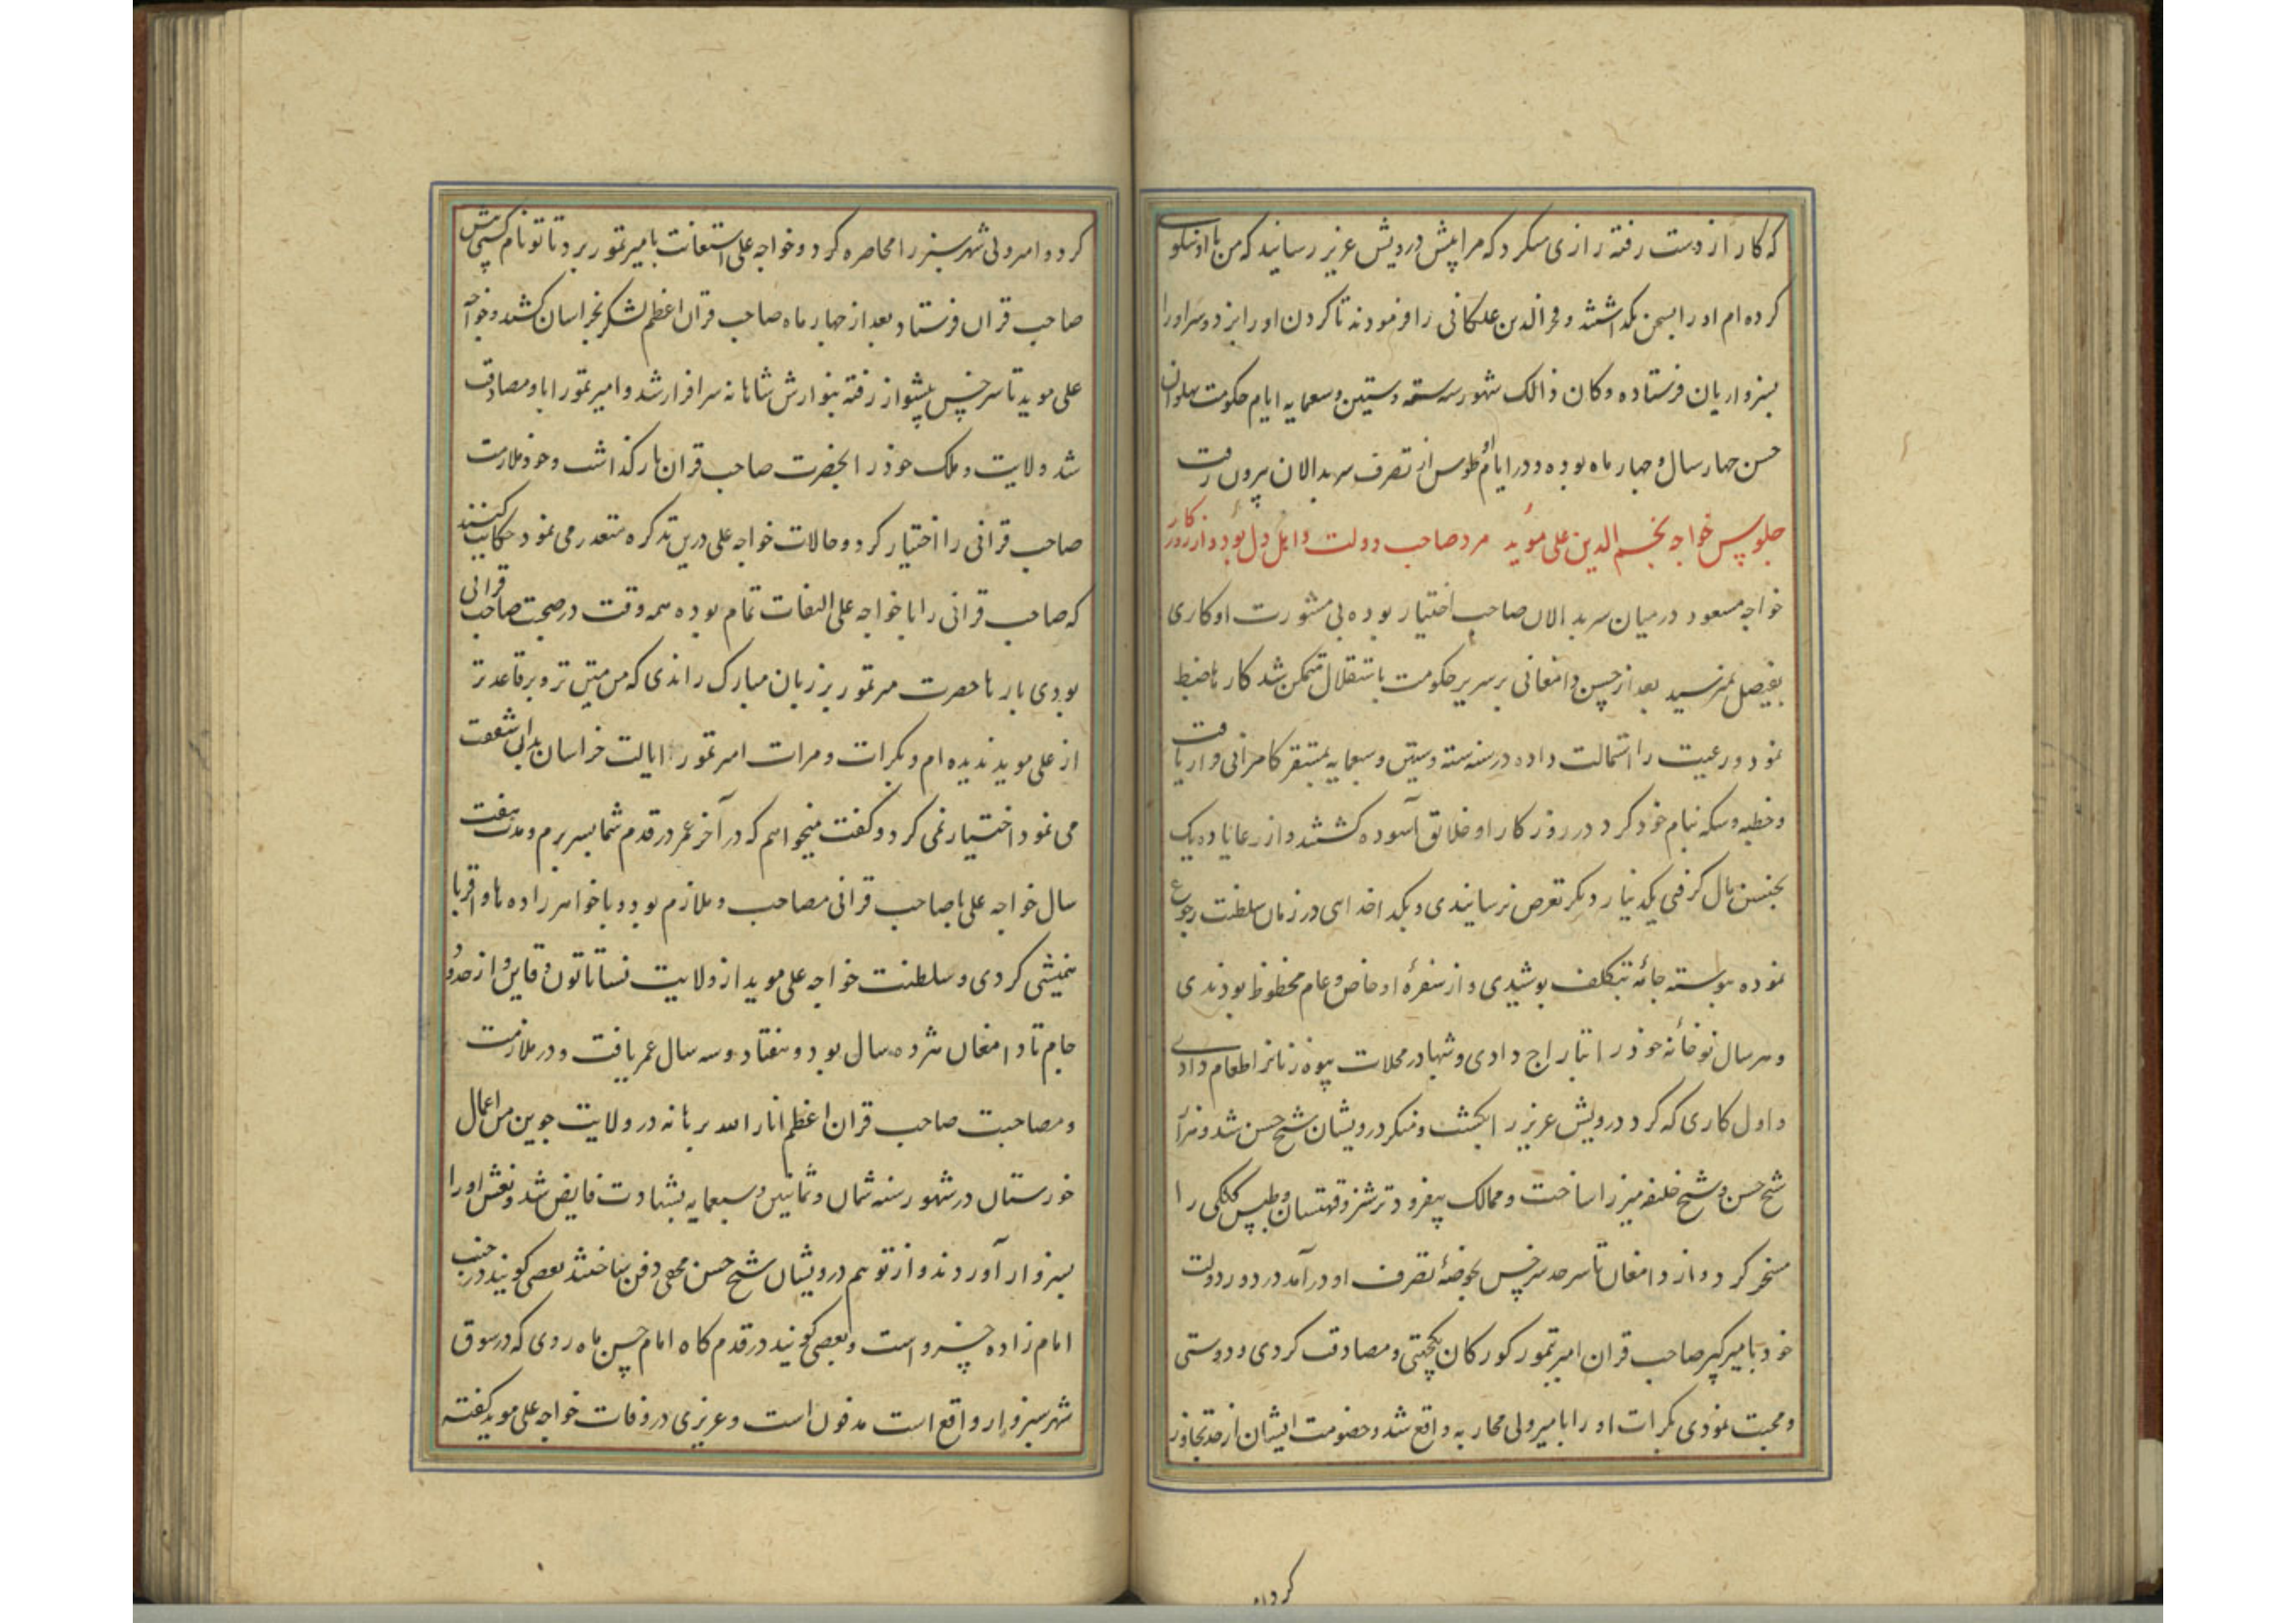 که کار از دست رفته زاری میکرد که مرا پیش درویش عزیز رسانید که من با او نیکویی
کرده‌ام او را بسخن نگذاشتند و فخرالدین علکانی را فرمودند تا گردن او را بزد و سر او را
بسبزواریان فرستاده و کان ذالک شهور سنه ستة و ستین و سبعمایه ایام حکومت پهلوان
حسن چهار سال و چهار ماه بوده و در ایام او طوس از تصرف سربدالان بیرون رفت
جلوس خواجه نجم الدین علی مؤید مرد صاحب دولت و اهل دل بود و از روزکار
خواجه مسعود در میان سربدالان صاحب اختیار بوده بی مشورت او کاری
بفیصل نمیرسید بعد از حسن دامغانی بر سریر حکومت باستقلال متمکن شد کارها ضبط
نمود و رعیت را استمالت داده در سنه ستة و ستین و سبعمایه بمستقر کامرانی قرار یافت
و خطبه و سکه بنام خود کرد در روزکار او خلائق آسوده کشتند و از رعایا ده یک
بجنس مال کرفتی یکدینار دیکر تعرض نرسانیدی و یکد اخداهی در زمان سلطنت رجوع
نموده پیوسته جامهٔ بتکلف پوشیدی و از سفرهٔ او خاص و عام محظوظ بودندی
و هر سال نو خانهٔ خود را بتاراج دادی و شبها در محلات بیوه زنانرا طعام دادی
و اول کاری که کرد درویش عزیز را بکشت و منکر درویشان شیخ حسن شد و مزار
شیخ حسن و شیخ خلیفه مبرز اساخت و ممالک بیفزود ترشیز و قهستان و طبس کیلکی را
مسخر کرد و از دامغان تا سرحد سرخس بحوضهٔ تصرف او درآمد در دور دولت
خود بامیر کبیر صاحب قران امیر تیمور کورکان یکجهتی و مصادقت کردی و دوستی
و محبت نمودی بکرات او را بامیر ولی محاربه واقع شد و خصومت ایشان از حد تجاوز
کرد و امیر ولی شهر سبزوار محاصره کرد و خواجه علی استعانت بامیر تیمور برد تا تونام کسی پیش
صاحب قران فرستاد و بعد از چهار ماه صاحب قران اعظم لشکر بخراسان کشید و خواجه
علی موید تا سرخس پیشواز رفته بنوازش شاهانه سرافراز شد و امیر تیمور را با او مصادقت
شد ولایت و ملک خود را بحضرت صاحب قران بازکذاشت و خود ملازمت
صاحب قرانی را اختیار کرد و حالات خواجه علی درین تذکره متعذر می نمود حکایت کنند
که صاحب قرانی را با خواجه علی التفات تمام بوده همه وقت در صحبت صاحب قرانی
بودی بارها حضرت میر تیمور بر زبان مبارک راندی که من متین تر و برقاعده تر
از علی موید ندیده‌ام و بکرات و مرات امیر تیمور ایالت خراسان بدان شفقت
می نمود اختیار نمی کرد و کفت میخواهم که در آخر عمر در قدم شما بسر برم و مدت هفت
سال خواجه علی با صاحب قرانی مصاحب و ملازم بود و با خواهرزاده ها و اقربا
همنشینی کردی و سلطنت خواجه علی موید از ولایت نسا تا تون و قاین و از حدود
جام تا دامغان هژده سال بود و هفتاد و سه سال عمر یافت و در ملازمت
و مصاحبت صاحب قران اعظم انار الله برهانه در ولایت جوین من اعمال
خورستان در شهور سنه ثمان و ثمانین و سبعمایه بشهادت فایض شد و نعش او را
بسبزوار آوردند و از توهم درویشان شیخ حسن مخفی دفن ساختند بعضی کویند در جنب
امام زاده خسرو است و بعضی کویند در قدمکاه امام حسن ماه روی که در سوق
شهر سبزوار واقع است مدفون است و عزیزی در وفات خواجه علی موید کفته